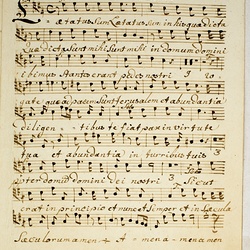 Lætatus sum Lætatus sum in his quæ dicta
Quæ dicta sunt mihi sunt mihi in domum domini
ibimus Stantes erant pedes nostri 3 Ro
gate quæ ad pacem sunt Jerusalem et abundantia
diligentibus te fiat pax in virtute
tua et abundantia in turribus tuis
propter domum domini dei nostri 3 Sicut
erat in principio et nunc et semper et in Sæcula
Sæculorum amen A men amen amen